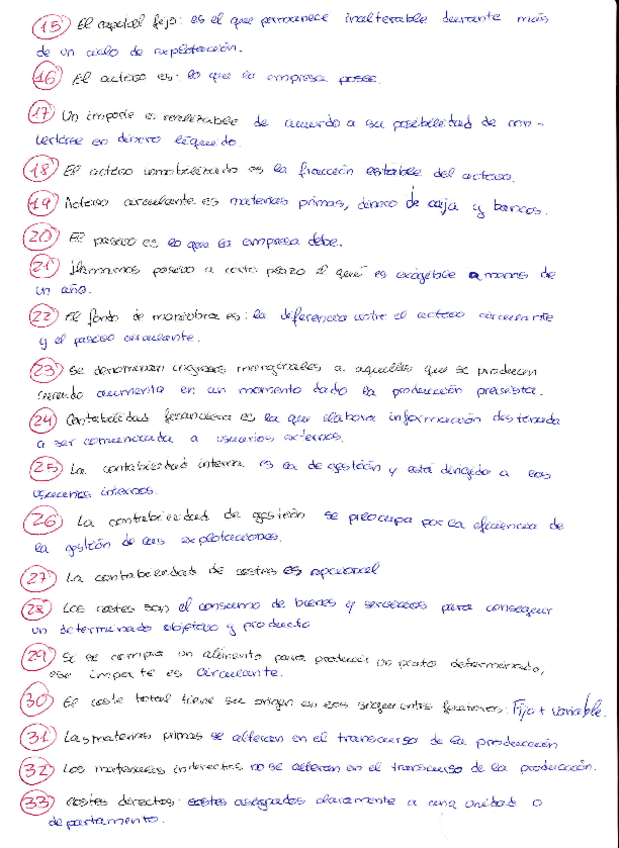 15) El capital fijo: es el que permanece inalterable durante más
de un ciclo de explotación.
16) El activo es: lo que la empresa posee.
17) Un importe es realizable de acuerdo a su posibilidad de con-
vertirse en dinero líquido.
18) El activo inmobilizado es la fracción estable del activo.
19) Activo circulante es materias primas, dinero de caja y bancos.
20) El pasivo es lo que la empresa debe.
21) Llamamos pasivo a corto plazo el que es exigible a menos de
un año.
22) El fondo de maniobra es: la diferencia entre el activo circulante
y el pasivo circulante.
23) Se denominan ingresos marginales a aquellos que se producen
cuando aumenta en un momento dado la producción prevista.
24) Contabilidad financiera es la que elabora información destinada
a ser comunicada a usuarios externos.
25) La contabilidad interna es la de gestión y está dirigida a los
usuarios internos.
26) La contabilidad de gestión se preocupa por la eficiencia de
la gestión de las explotaciones.
27) La contabilidad de costes es opcional
28) Los costes son el consumo de bienes y servicios para conseguir
un determinado objetivo y producto
29) Si se compra un alimento para producir un plato determinado,
ese importe es circulante.
30) El coste total tiene su origen en los siguientes factores: Fijo + variable.
31) Las materias primas se alteran en el transcurso de la producción
32) Los materiales indirectos no se alteran en el transcurso de la producción.
33) Costes directos: costes asignados claramente a una unidad o
departamento.